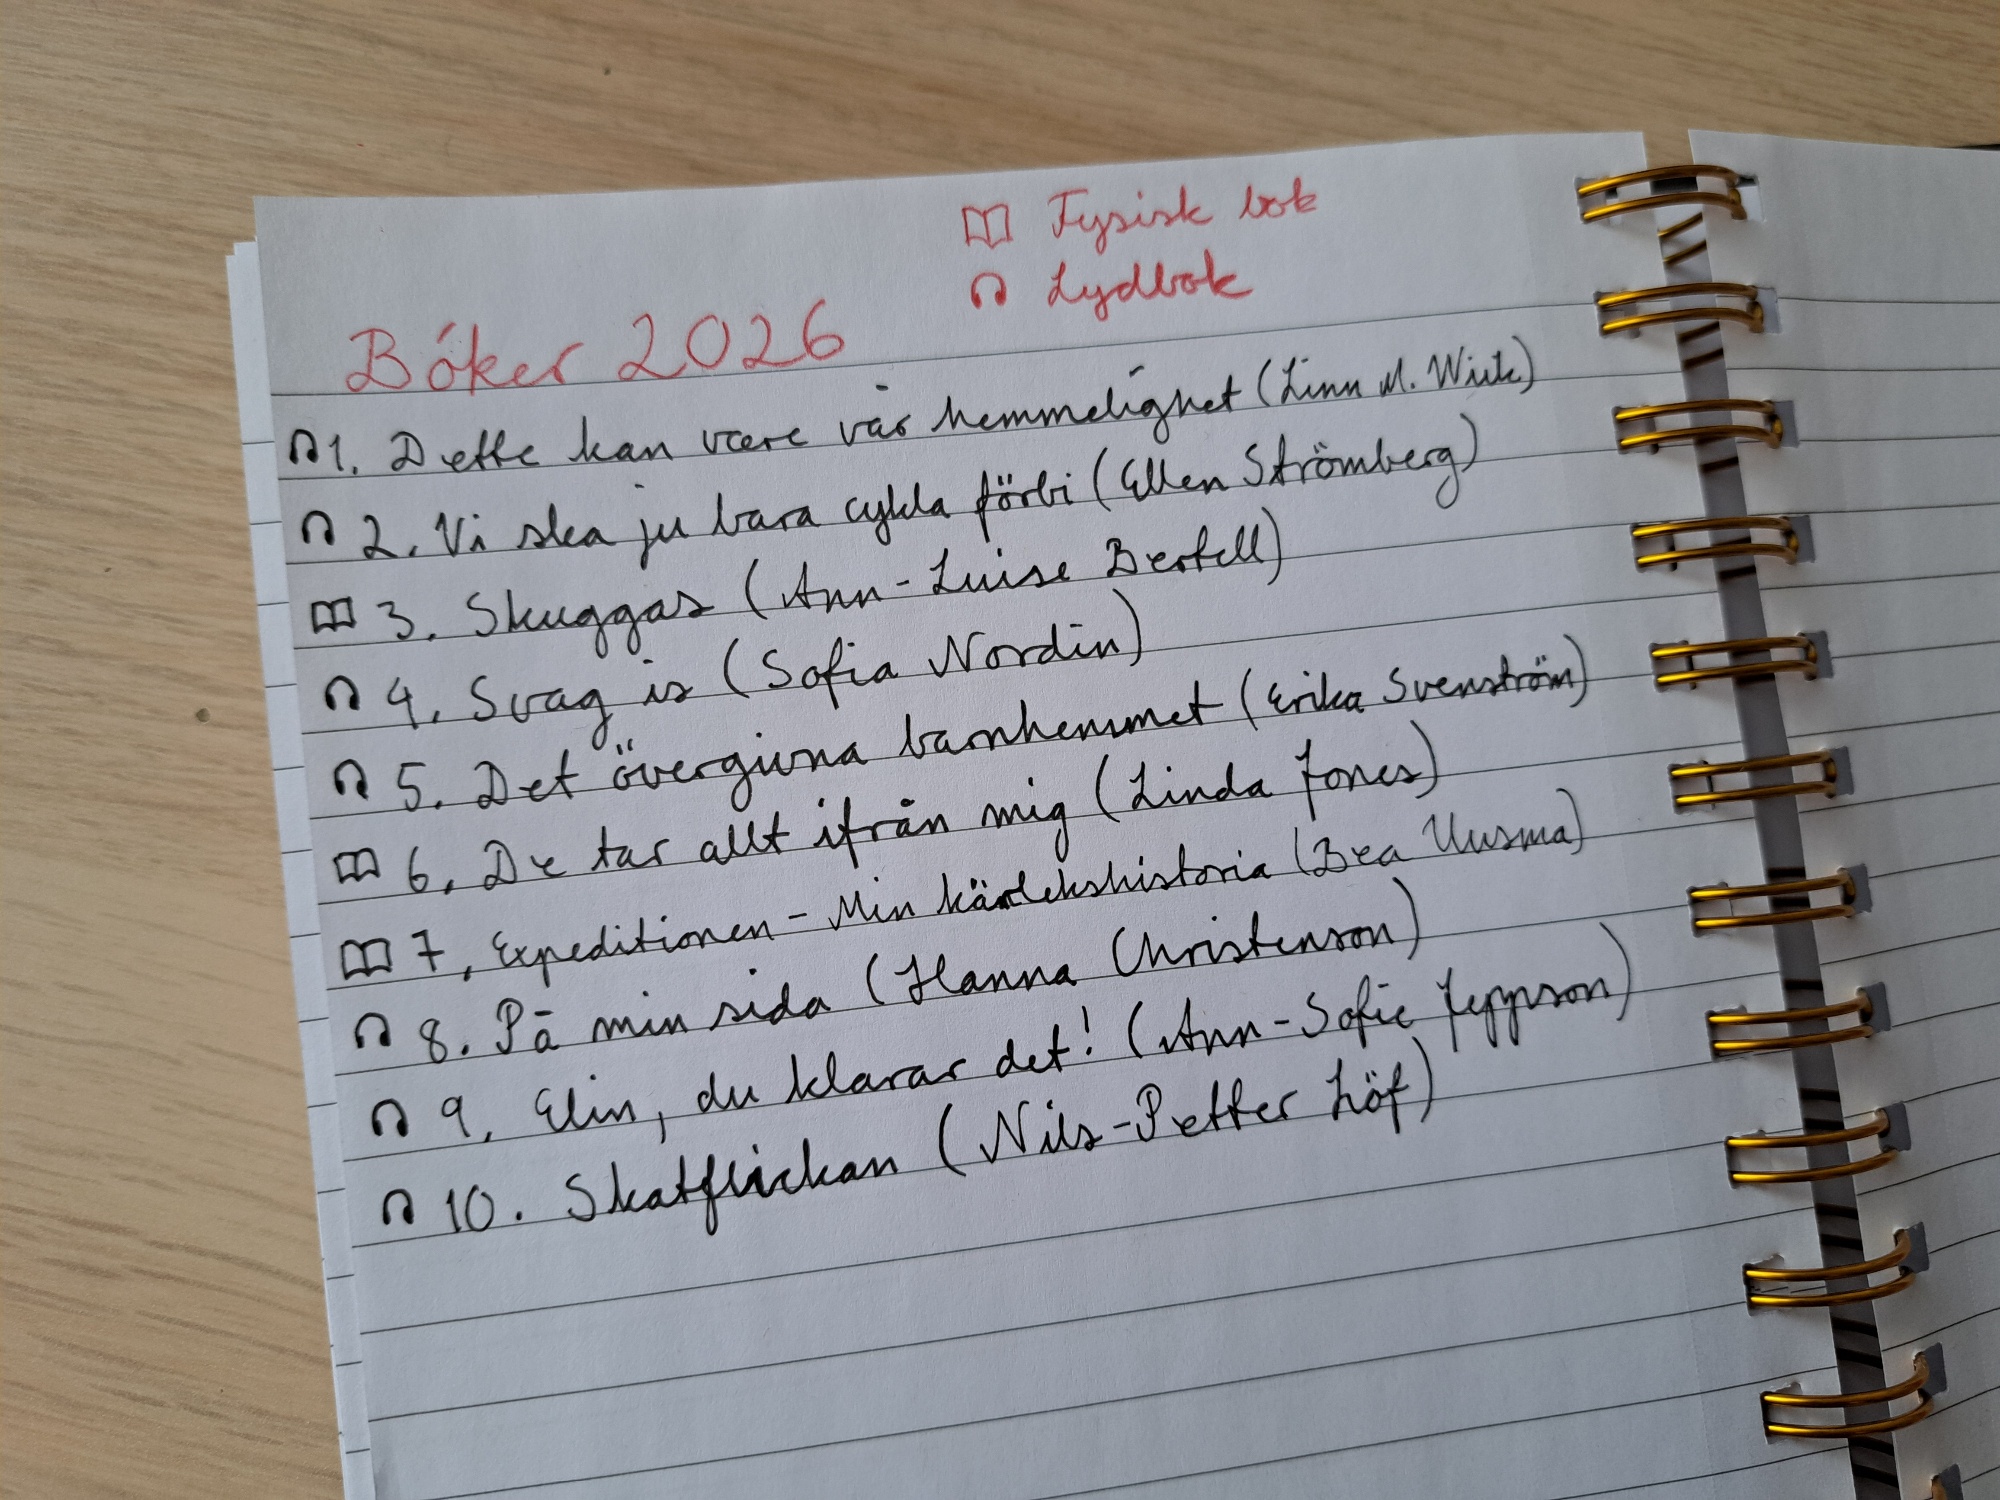 Fysisk bok
Lydbok
Bóker 2026
1. Dette kan være vår hemmelighet (Linn M. Wiik)
2. Vi ska ju bara cykla förbi (Ellen Strömberg)
3. Skuggas (Ann-Luise Bertell)
4. Svag is (Sofia Nordin)
5. Det övergivna barnhemmet (Erika Svenström)
6. De tar allt ifrån mig (Linda Jones)
7. Expeditionen - Min kärlekshistoria (Bea Uusma)
8. På min sida (Hanna Christenson)
9. Elin, du klarar det! (Ann-Sofie Jeppson)
10. Skatflickan (Nils-Petter Löf)